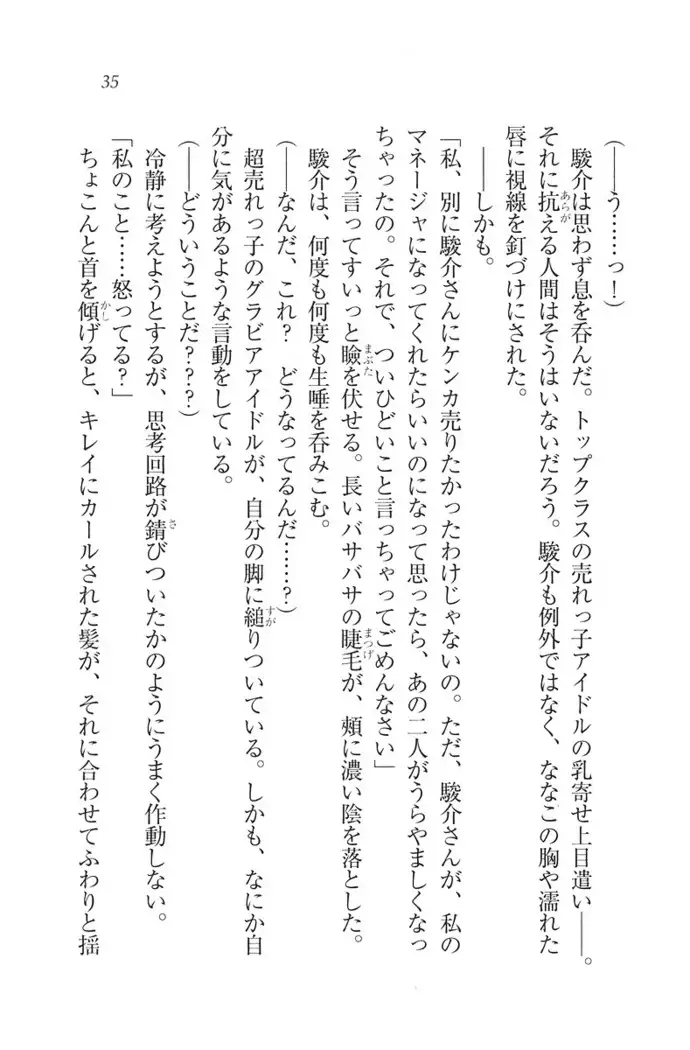 35
(――う……っ！)
駿介は思わず息を呑んだ。トップクラスの売れっ子アイドルの乳寄せ上目遣い――。
それに抗える人間はそうはいないだろう。駿介も例外ではなく、ななこの胸や濡れた
唇に視線を釘づけにされた。
――しかも。
「私、別に駿介さんにケンカ売りたかったわけじゃないの。ただ、駿介さんが、私の
マネージャになってくれたらいいのになって思ったら、あの二人がうらやましくなっ
ちゃったの。それで、ついひどいこと言っちゃってごめんなさい」
そう言ってすいっと瞼を伏せる。長いバサバサの睫毛が、頬に濃い陰を落とした。
駿介は、何度も何度も生唾を呑みこむ。
(――なんだ、これ？　どうなってるんだ……？)
超売れっ子のグラビアアイドルが、自分の脚に縋りついている。しかも、なにか自
分に気があるような言動をしている。
(――どういうことだ？？？)
冷静に考えようとするが、思考回路が錆びついたかのようにうまく作動しない。
「私のこと……怒ってる？」
ちょこんと首を傾げると、キレイにカールされた髪が、それに合わせてふわりと揺